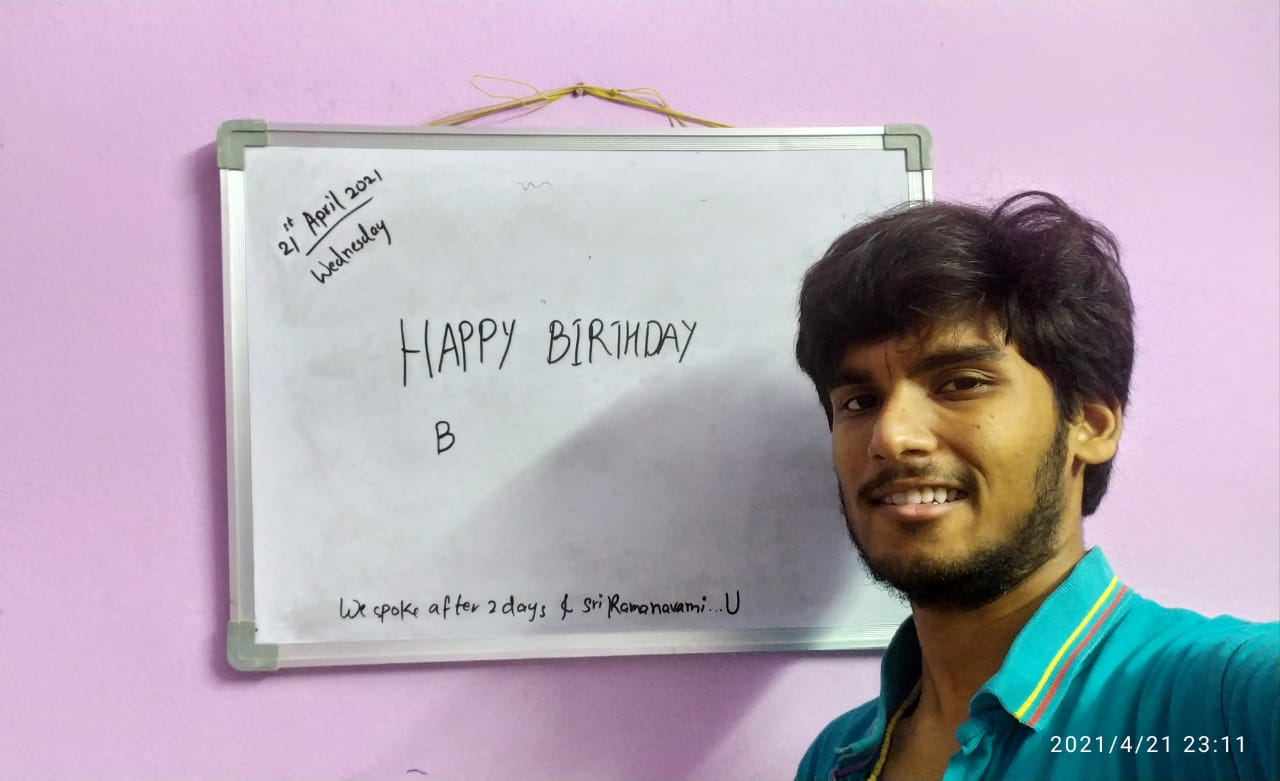 21st April 2021
Wednesday
HAPPY BIRTHDAY
B
We spoke after 2 days & Sri Ramanavami...U
2021/4/21 23:11